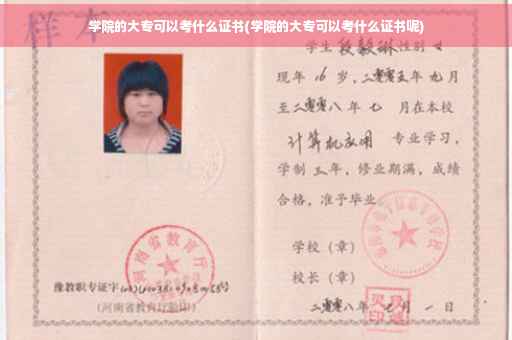 学院的大专可以考什么证书(学院的大专可以考什么证书呢)
样本
学生 段毅琳 性别 女
现年 16 岁,二零零五年 九 月
至二零零八 年 七 月在本校
计算机应用 专业学习,
学制 三 年,修业期满,成绩
合格,准予毕业
学校(章)
校长(章)
二零零八年 七 月 一 日
河南省教育厅
豫教职专证字
(河南省教育厅验印)